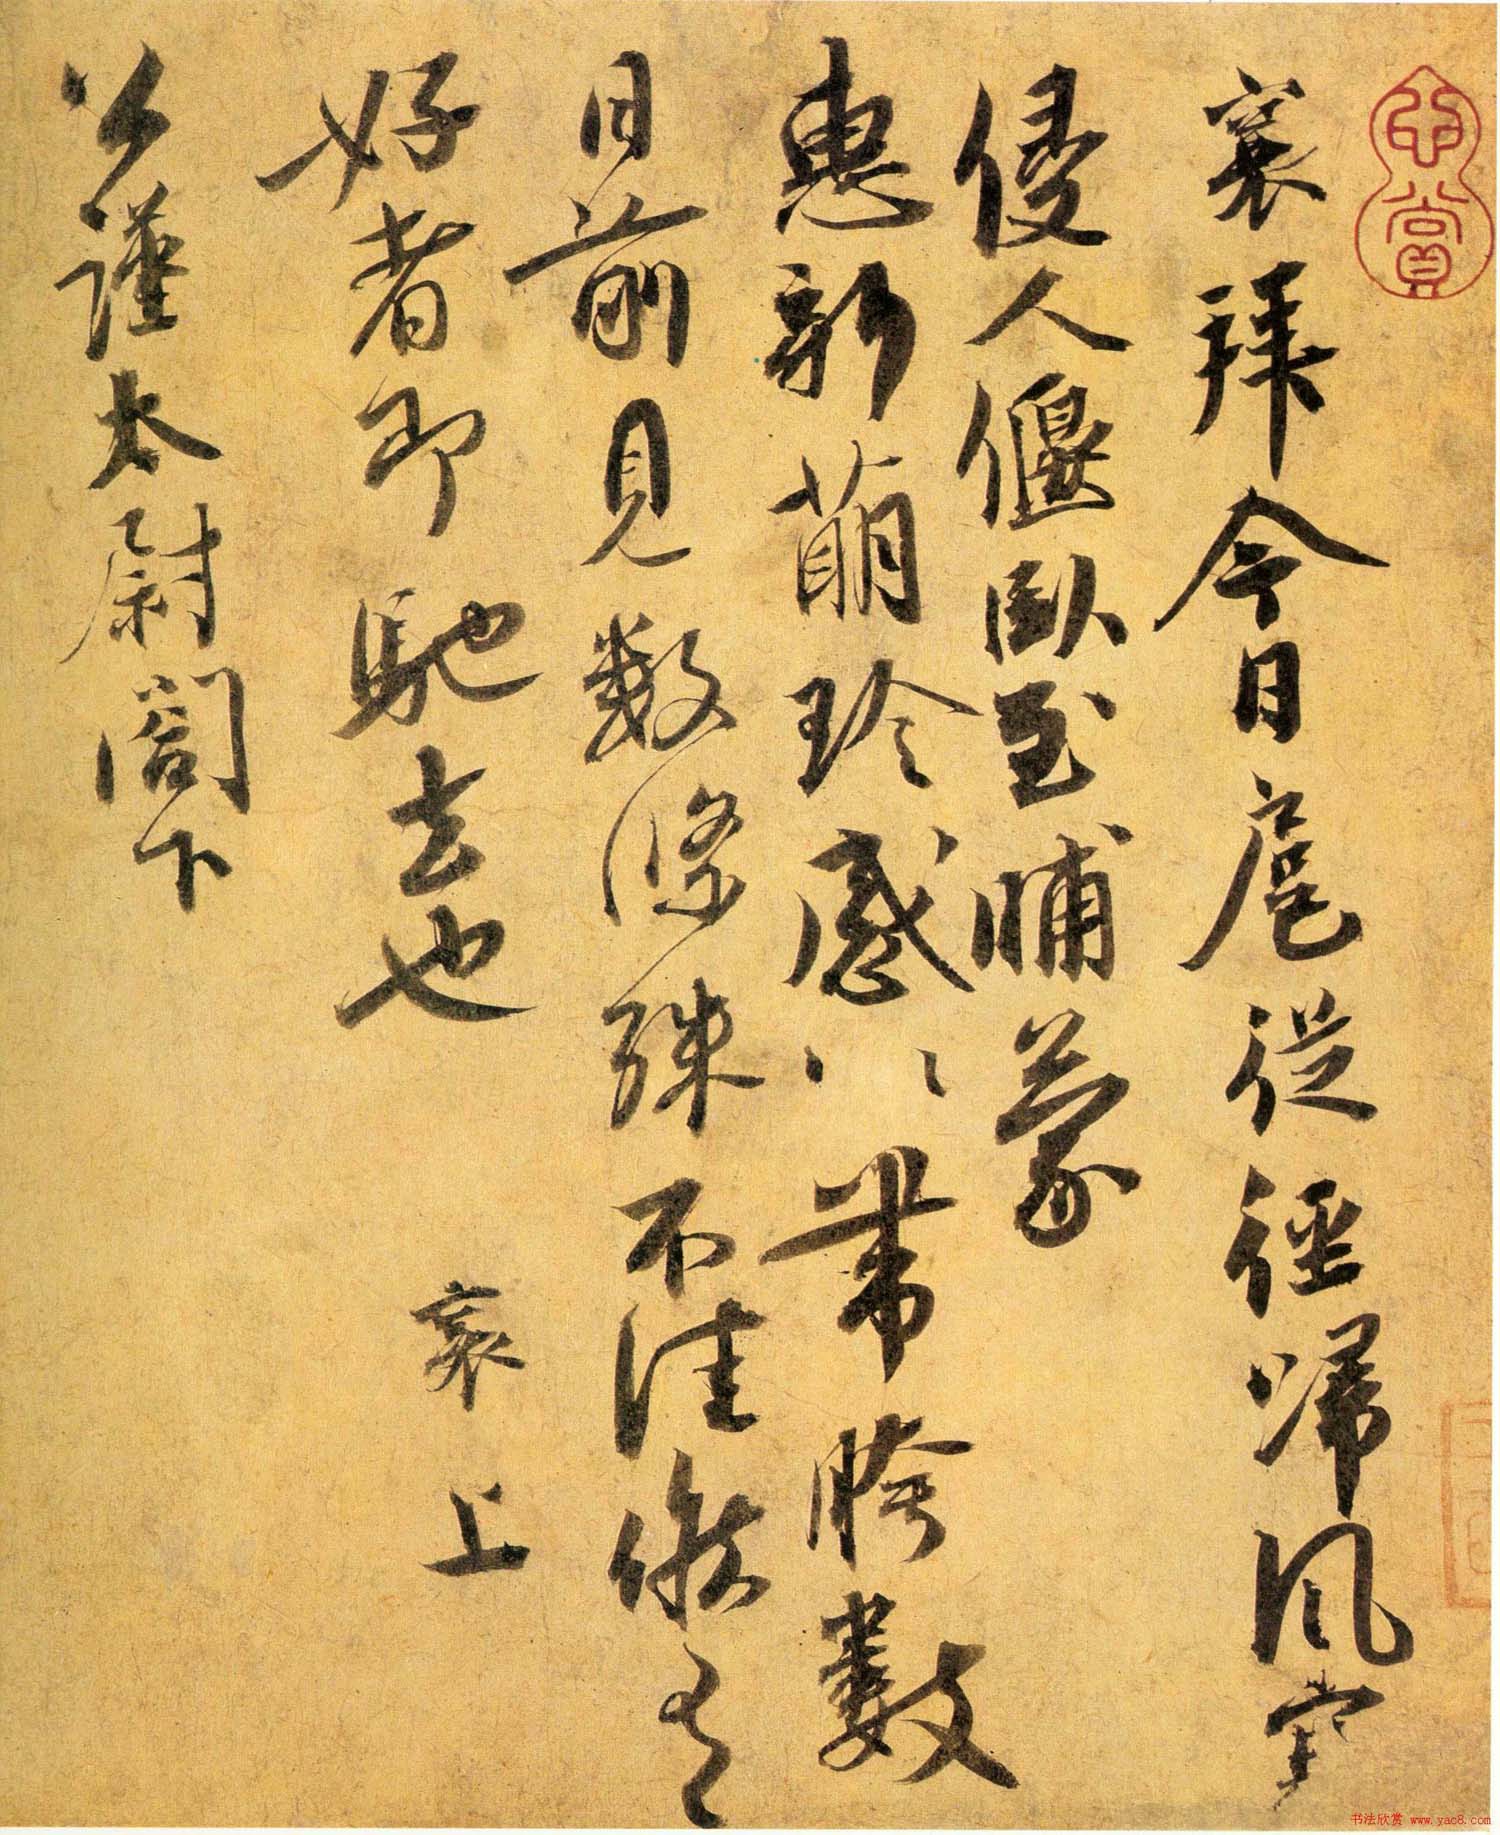 襄拜今日扈從徑歸風寒
侵人偃臥至晡蒙
惠新萌珍感〻帶胯數
日前見數條殊不佳候有
好者即馳去也
襄上
公謹太尉閤下
書法欣賞 www.yac8.com